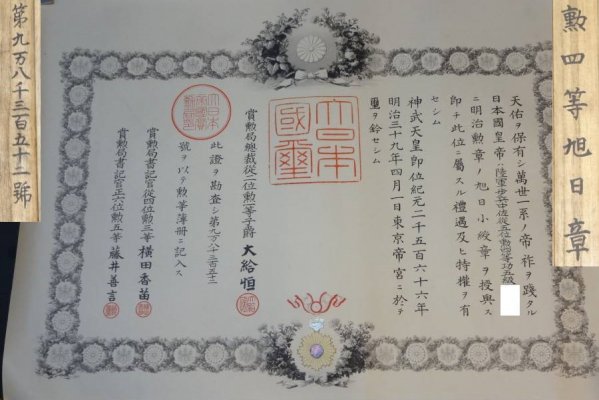 勲四等旭日章
天佑ヲ保有シ萬世一系ノ帝祚ヲ踐タル
日本國皇帝ハ陸軍歩兵中佐従五位勲四等功五級
ニ明治勲章ノ旭日小綬章ヲ授與ス
即チ此位ニ屬スル禮遇及ヒ特權ヲ有
セシム
神武天皇即位紀元二千五百六十六年
明治三十九年四月一日東京帝宮ニ於テ
璽ヲ鈐セシム
大日本
國璽
賞勲局總裁従二位勲一等子爵 大給恒
此證ヲ勘査シ第九万八千三百五十二
號ヲ以テ勲等簿冊ニ記入ス
賞勲局書記官従四位勲三等 横田香苗
賞勲局書記官正六位勲五等 藤井善言
第九万八千三百五十二號